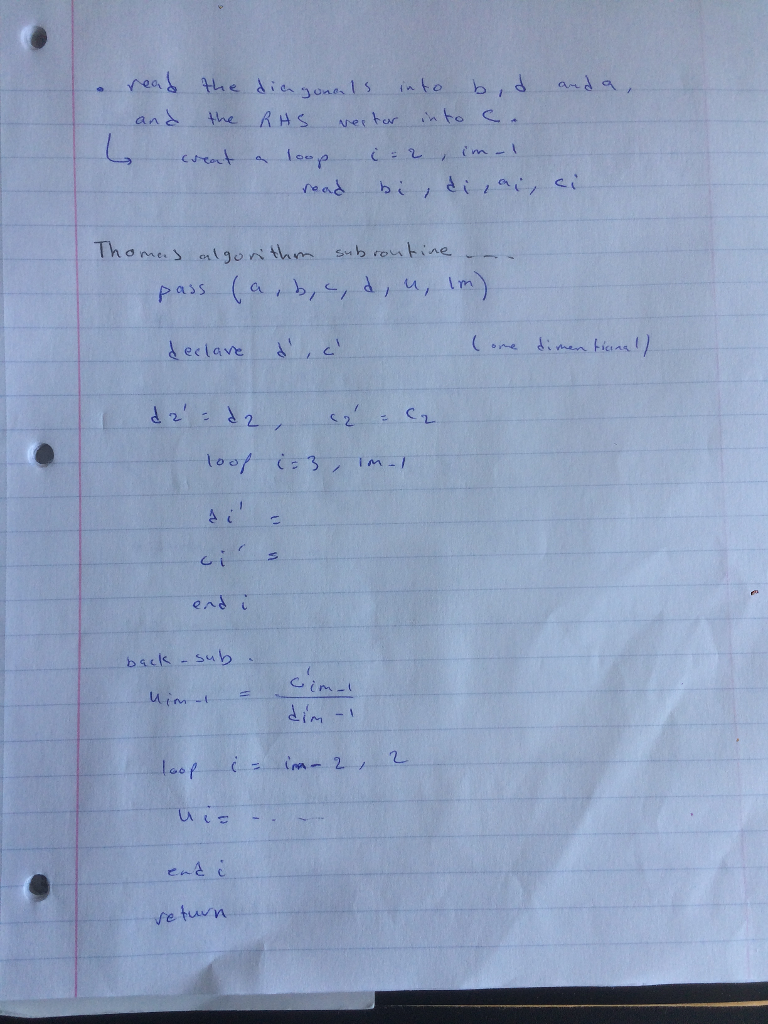 • read the diagonals into b, d and a,
and the RHS vector into c.
↳ creat a loop i = 2, im-1
read bi, di, ai, ci
Thomas algorithm subroutine ----
pass (a, b, c, d, u, Im)
declare d', c' (one dimentional)
d2' = d2, c2' = c2
loop i=3, im-1
di' =
ci' =
end i
back-sub.
uim-1 = c'im-1 / d'im-1
loop i = im-2, 2
ui= -- --
end i
return